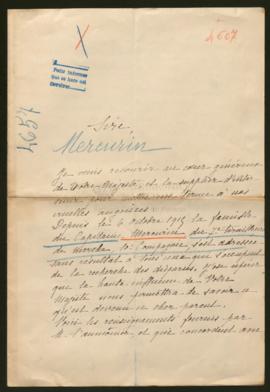 4607
4657
Sire,
Mercurin
Je viens recourir au cœur généreux
de Votre Majesté, et la supplier d'
pour mettre un terme à nos
cruelles angoisses.
Depuis le 6 octobre 1915 la famille
du Capitaine Mercurin du 7e
de marche 10e Compagnie, s'est adressée
sans résultat à tous ceux qui s'occupent
de la recherche des disparus. J'ose espérer
que la haute influence de Votre
Majesté nous permettra de savoir ce
qu'est devenu ce cher parent.
Voici les renseignements fournis par
M. l'aumônier et qui concordent avec